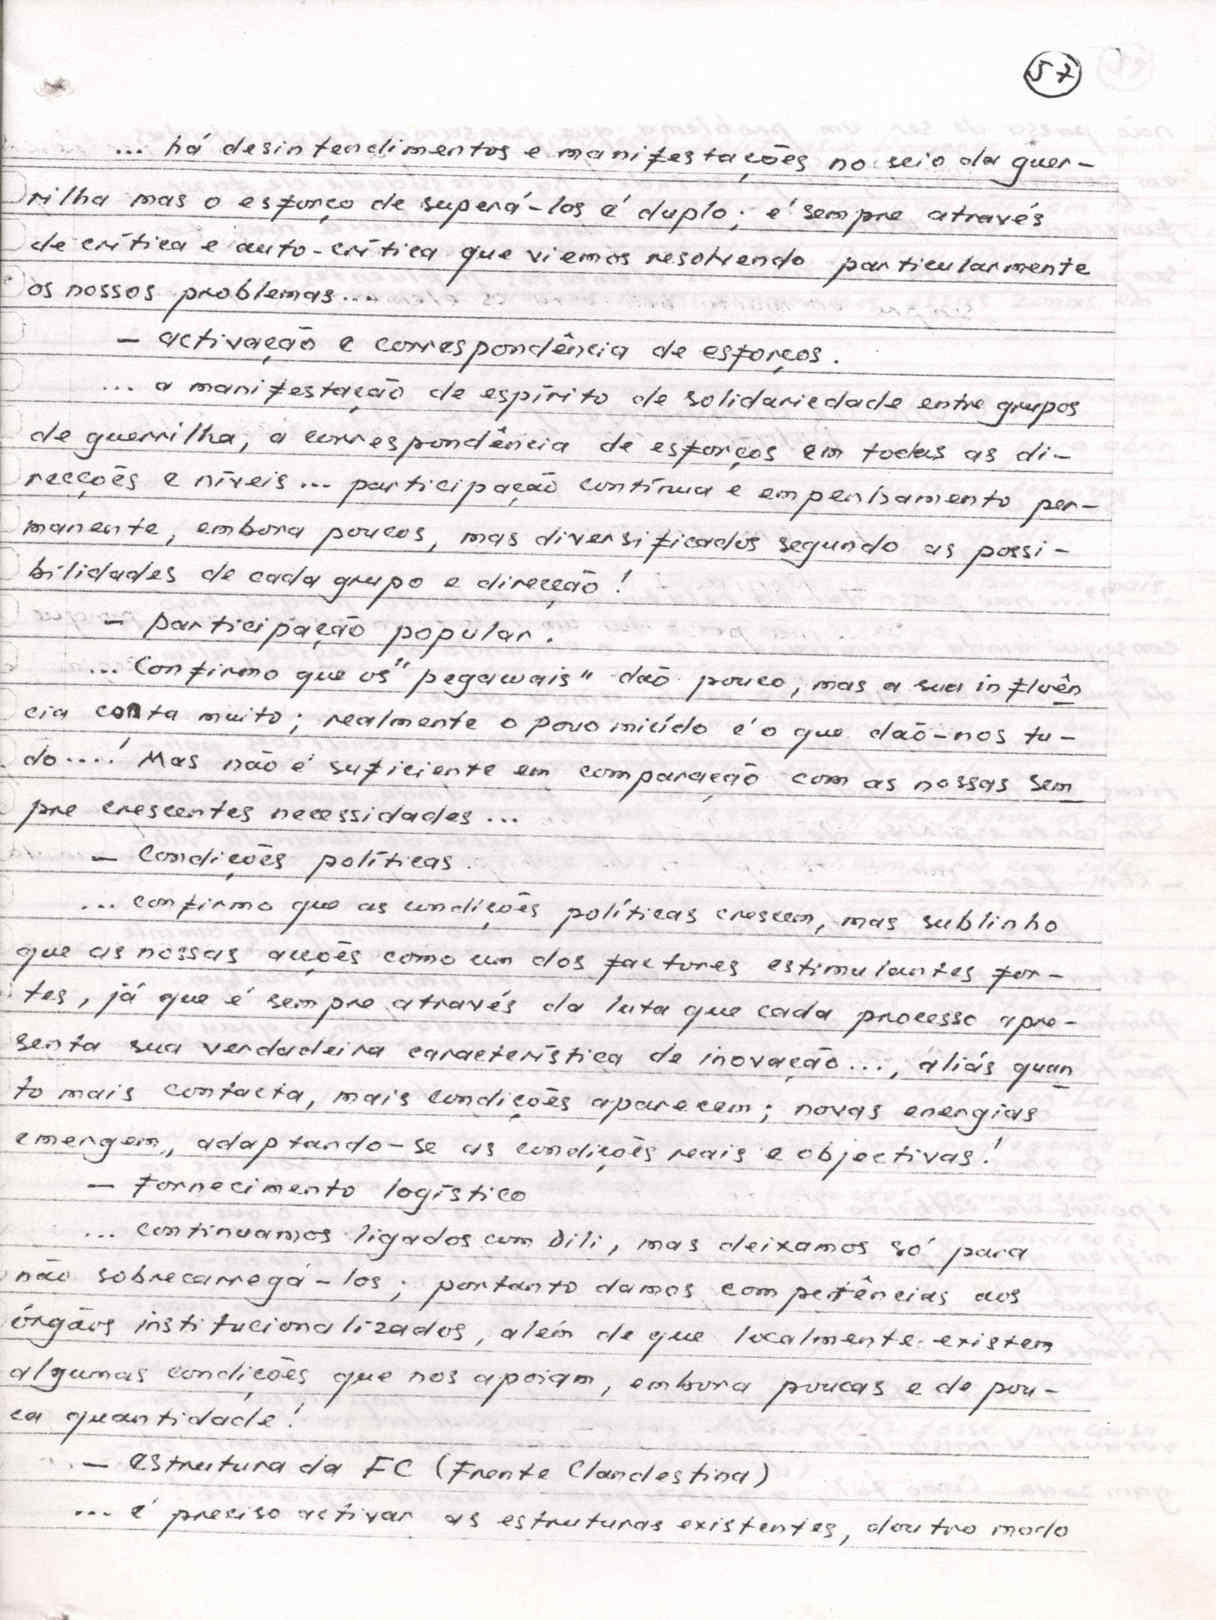 57
... há desintendimentos e manifestações no seio da guer-
rilha mas o esforço de superá-los é duplo; é sempre através
de crítica e auto-crítica que viemos resolvendo particularmente
os nossos problemas...
- activação e correspondência de esforços.
... a manifestação de espírito de solidariedade entre grupos
de guerrilha, a correspondência de esforços em todas as di-
recções e níveis... participação contínua e empenhamento per-
manente, embora poucos, mas diversificados segundo as possi-
bilidades de cada grupo e direcção!
- participação popular.
... Confirmo que os "pegawais" dão pouco, mas a sua influên
cia conta muito; realmente o povo miúdo é o que dão-nos tu-
do....! Mas não é suficiente em comparação com as nossas sem
pre crescentes necessidades...
- Condições políticas.
... confirmo que as condições políticas crescem, mas sublinho
que as nossas acções como um dos factores estimulantes for-
tes, já que é sempre através da luta que cada processo apre-
senta sua verdadeira característica de inovação..., aliás quan
to mais contacta, mais condições aparecem; novas energias
emergem, adaptando-se as condições reais e objectivas!
- fornecimento logístico
... continuamos ligados com Dili, mas deixamos só para
não sobrecarregá-los; portanto damos competências aos
órgãos institucionalizados, além de que localmente existem
algumas condições que nos apoiam, embora poucas e de pou-
ca quantidade!
- estrutura da FC (Frente Clandestina)
... é preciso activar as estruturas existentes, doutro modo